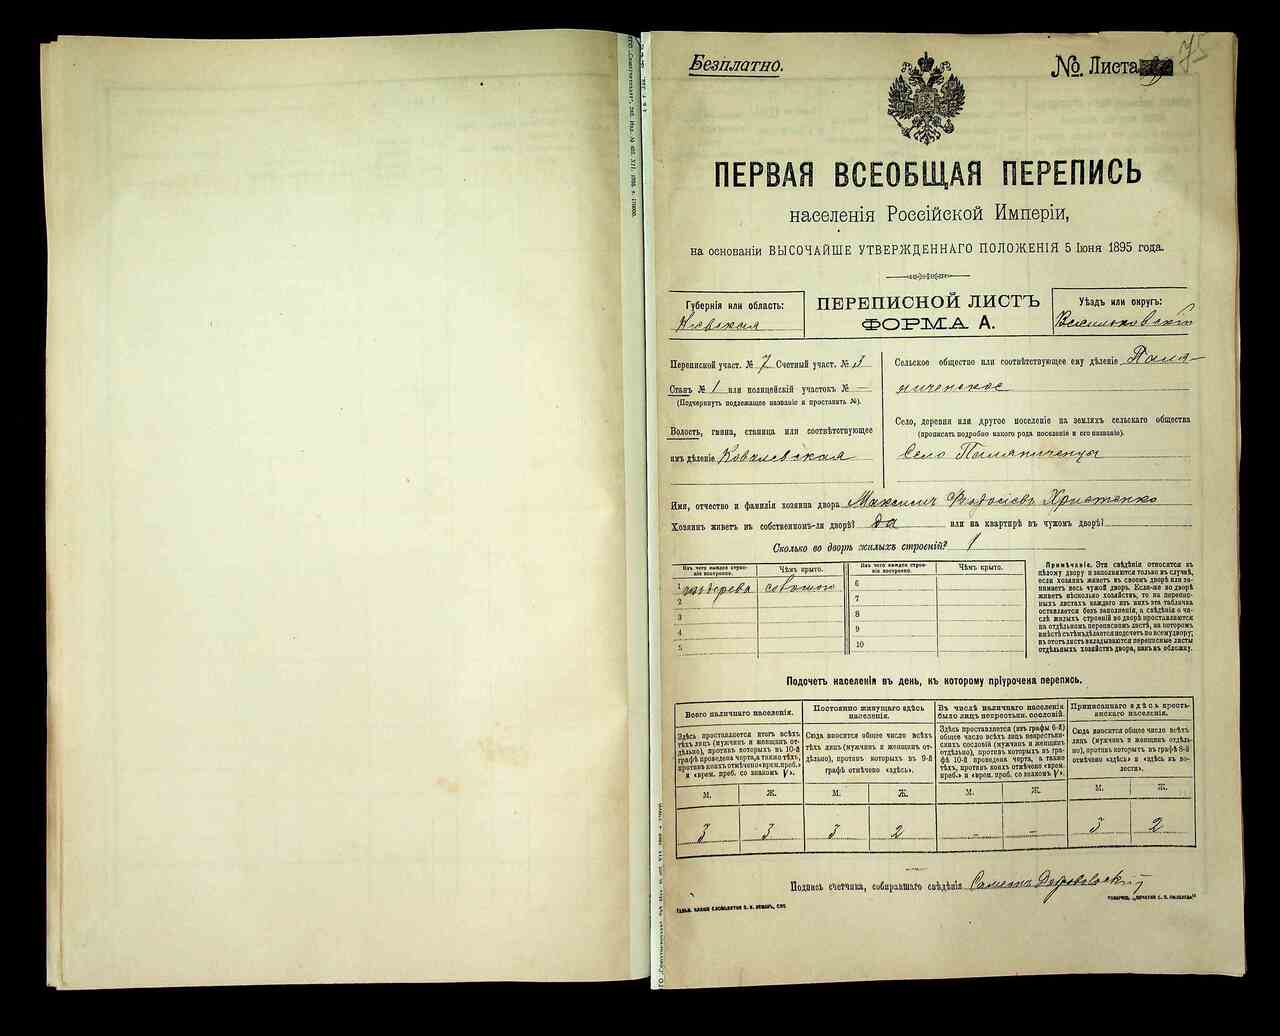 Безплатно.
№ Листа 75
ПЕРВАЯ ВСЕОБЩАЯ ПЕРЕПИСЬ
населенія Россійской Имперіи,
на основаніи ВЫСОЧАЙШЕ УТВЕРЖДЕННАГО ПОЛОЖЕНІЯ 5 Іюня 1895 года.
Губернія или область:
Кіевская
ПЕРЕПИСНОЙ ЛИСТЪ
ФОРМА А.
Уѣздъ или округъ:
Васильковскій
Переписной участ. № 7 Счетный участ. № 3
Станъ № 1 или полицейскій участокъ № —
(Подчеркнуть подлежащее названіе и проставить №).
Волость, гмина, станица или соотвѣтствующее
имъ дѣленіе Ковалевская
Сельское общество или соотвѣтствующее ему дѣленіе Пиля-
ниченское
Село, деревня или другое поселеніе на земляхъ сельскаго общества
(прописать подробно какого рода поселеніе и его названіе).
Село
Имя, отчество и фамилія хозяина двора Максимъ Феодосіевъ Христенко
Хозяинъ живетъ въ собственномъ-ли дворѣ? да или на квартирѣ въ чужомъ дворѣ?
Сколько во дворѣ жилыхъ строеній? 1
Изъ чего каждое строе-
ніе построено.
Чѣмъ крыто.
Изъ чего каждое строе-
ніе построено.
Чѣмъ крыто.
1 изъ дерева соломою
2
3
4
5
6
7
8
9
10
Примѣчаніе. Эти свѣдѣнія относятся къ
цѣлому двору и заполняются только въ случаѣ,
если хозяинъ живетъ въ своемъ дворѣ или за-
нимаетъ весь чужой дворъ. Если-же во дворѣ
живетъ нѣсколько хозяйствъ, то на перепис-
ныхъ листахъ каждаго изъ нихъ эта табличка
оставляется безъ заполненія, а свѣдѣнія о чи-
слѣ жилыхъ строеній во дворѣ проставляются
на отдѣльномъ переписномъ листѣ, на которомъ
вмѣстѣ съ тѣмъ дѣлается подсчетъ по всему двору;
въ этотъ листъ вкладываются переписные листы
отдѣльныхъ хозяйствъ двора, какъ въ обложку.
Подсчетъ населенія въ день, къ которому пріурочена перепись.
Всего наличнаго населенія.
Здѣсь проставляется итогъ всѣхъ
тѣхъ лицъ (мужчинъ и женщинъ от-
дѣльно), противъ которыхъ въ 10-й
графѣ проведена черта, а также тѣхъ,
противъ коихъ отмѣчено «врем. преб.»
и «врем. преб. со знакомъ V».
Постоянно живущаго здѣсь
населенія.
Сюда вносится общее число всѣхъ
тѣхъ лицъ (мужчинъ и женщинъ от-
дѣльно), противъ которыхъ въ 9-й
графѣ отмѣчено «здѣсь».
Въ числѣ наличнаго населенія
было лицъ некрестьян. сословій.
Здѣсь проставляется (изъ графы 6-й)
общее число всѣхъ лицъ некрестьян-
скихъ сословій (мужчинъ и женщинъ
отдѣльно), противъ которыхъ въ гра-
фѣ 10-й проведена черта, а также
тѣхъ, противъ коихъ отмѣчено «врем.
преб.» и «врем. преб. со знакомъ V».
Приписаннаго здѣсь кресть-
янскаго населенія.
Сюда вносится общее число всѣхъ
лицъ (мужчинъ и женщинъ отдѣль-
но), противъ которыхъ въ графѣ 8-й
отмѣчено «здѣсь» и «здѣсь въ во-
лости».
М. Ж. М. Ж. М. Ж. М. Ж.
3 3 3 2 – – 3 2
Подпись счетчика, собиравшаго свѣдѣнія